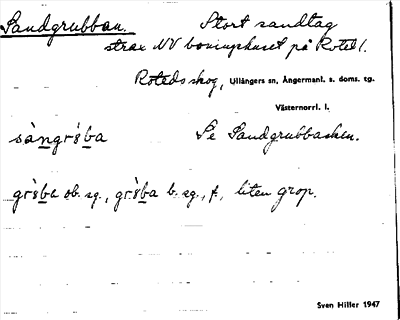 Sandgrubban. Stort sandtag
strax NV boningshuset på Roted 1.
Roteds skog, Ullångers sn, Ångermanl. s. doms. tg.
Västernorrl. l.
Se Sandgrubbacken.
ob. sg., b. sg., f., liten grop.
Sven Hiller 1947